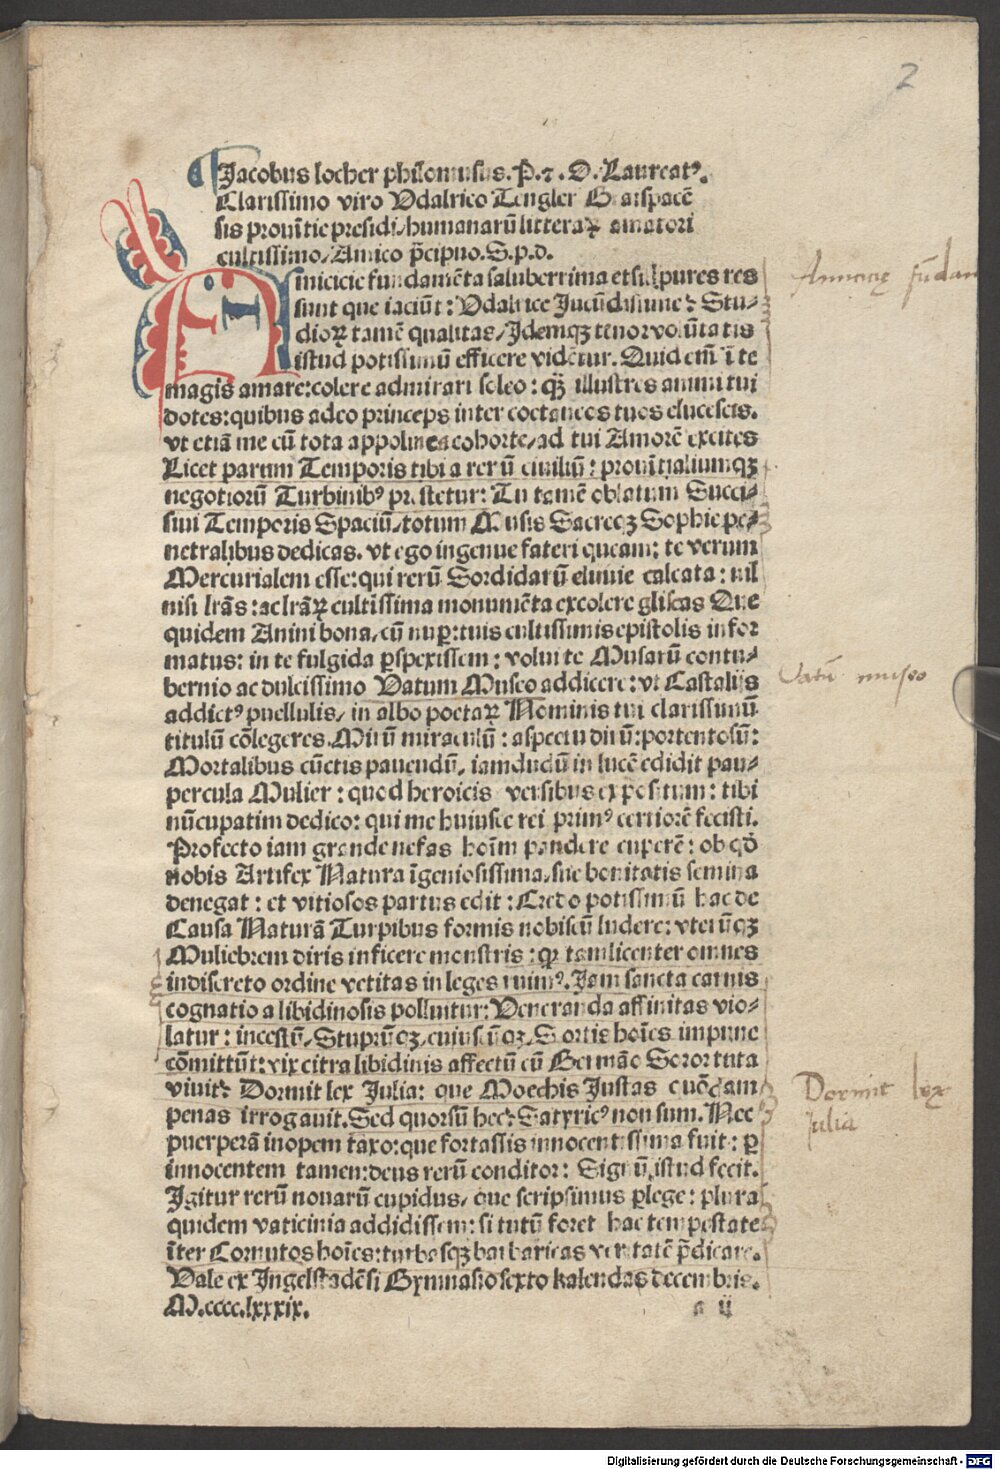 2
Jacobus locher philomusus. P. ⁊. O. Laureatꝰ.
Clarissimo viro Udalrico Tengler Graispacē
sis prouītie presidi/humanarū litteraꝝ amatori
cultissimo/Amico p̄cipuo. S.p.d.
Amicicie fundamēta saluberrima et sulpures res
sunt que iaciūt: Udalrice Jucūdissime: Stu⸗
dioꝝ tamē qualitas/Jdemqꝫ tenor volūtatis
istud potissimū efficere videtur. Quid em̄ ī te
magis amare:colere admirari soleo: qꝫ illustres animi tui
dotes:quibus adeo princeps inter coetaneos tuos elucescis.
vt etiā me cū tota appolinea cohorte/ad tui Amorē excites
Licet parum Temporis tibi a rerū ciuiliū: prouītialiumqꝫ
negotiorū Turbinibꝰ prestetur: Tu tamē oblatum Succi⸗
sui Temporis Spaciū/totum Musis Sacreqꝫ Sophie pe⸗
netralibus dedicas. vt ego ingenue fateri queam: te verum
Mercurialem esse:qui rerū Sordidarū eluuie calcata: nil
nisi lr̄as: ac lr̄aꝝ cultissima monumēta excolere gliscas Que
quidem Animi bona/cū nuꝑ:tuis cultissimis epistolis infor
matus: in te fulgida ꝑspexissem: volui te Musarū contu⸗
bernio ac dulcissimo Vatum Museo addicere: vt Castaliis
addictꝰ puellulis/ in albo poetaꝝ Nominis tui clarissimū
titulū cōlegeres. Mirū miraculū: aspectu dirū:portentosū:
Mortalibus cūctis pauendū/ iamdudū in lucē edidit pau⸗
percula Mulier: quod heroicis versibus expositum: tibi
nūcupatim dedico: qui me huiusce rei primꝰ certiorē fecisti.
Profecto iam grande nefas hoīm pandere cuperē: ob qd̄
nobis Artifex Natura īgeniosissima/sue bonitatis semina
denegat: et vitiosos partus edit: Credo potissimū hac de
Causa Naturā Turpibus formis nobiscū ludere: vterūqꝫ
Muliebrem diris inficere monstris: qꝛ tam licenter omnes
indiscreto ordine vetitas in leges ruimꝰ. Jam sancta carnis
cognatio a libidinosis polluitur: Veneranda affinitas vio⸗
latur: incestū/Stuprūqꝫ/cuiuscūqꝫ/Sortis hoīes impune
cōmittūt: vix citra libidinis affectū cū Germāo Soror tuta
viuit: Dormit lex Julia: que Moechis Justas quōdam
penas irrogauit. Sed quorsū hec: Satyricꝰ non sum. Nec
puerperā inopem taxo: que fortassis innocentissima fuit: ꝑ
innocentem tamen:deus rerū conditor: Signū istud fecit.
Jgitur rerū nouarū cupidus/ que scripsimus ꝑlege: plura
quidem vaticinia addidissem: si tutū foret hac tempestate
īter Cornutos hoīes:turbasqꝫ barbaricas veritatē p̄dicare.
Vale ex Jngelstadēsi Gymnasio sexto kalendas decembris.
M.cccc.lxxxix.
a ij
Amicicię fūdam
Vatū museo
Dormit lex
Julia
Digitalisierung gefördert durch die Deutsche Forschungsgemeinschaft - DFG